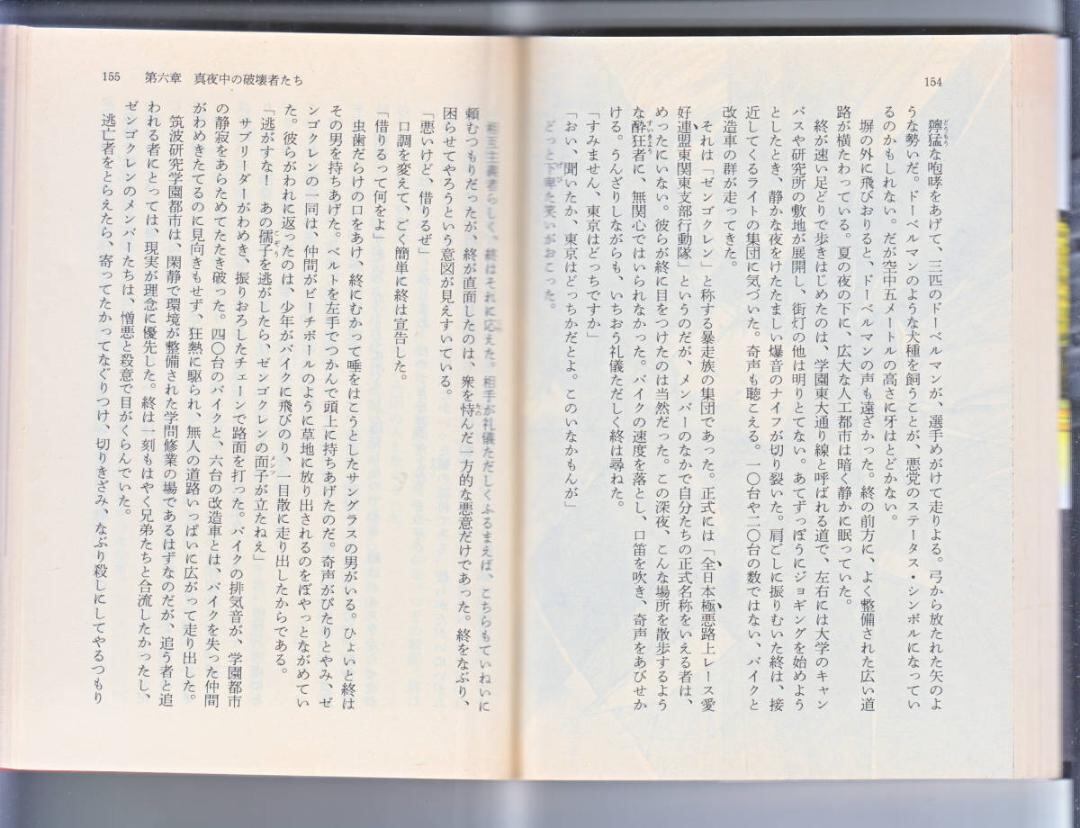 154
獰猛な咆哮をあげて、三匹のドーベルマンが、選手めがけて走りよる。弓から放たれた矢のよ
うな勢いだ。ドーベルマンのような犬種を飼うことが、悪党のステータス・シンボルになってい
るのかもしれない。だが空中五メートルの高さに牙はとどかない。
塀の外に飛びおりると、ドーベルマンの声も遠ざかった。終の前方に、よく整備された広い道
路が横たわっている。夏の夜の下に、広大な人工都市は暗く静かに眠っていた。
終が速い足どりで歩きはじめたのは、学園東大通り線と呼ばれる道で、左右には大学のキャン
パスや研究所の敷地が展開し、街灯の他は明りとてない。あてずっぽうにジョギングを始めよう
としたとき、静かな夜をけたたましい爆音のナイフが切り裂いた。肩ごしに振りむいた終は、接
近してくるライトの集団に気づいた。奇声も聴こえる。一〇台や二〇台の数ではない、バイクと
改造車の群が走ってきた。
それは「ゼンゴクレン」と称する暴走族の集団であった。正式には「全日本極悪路上レース愛
好連盟東関東支部行動隊」というのだが、メンバーのなかで自分たちの正式名称をいえる者は、
めったにいない。彼らが終に目をつけたのは当然だった。この深夜、こんな場所を散歩するよう
な酔狂者に、無関心ではいられなかった。バイクの速度を落とし、口笛を吹き、奇声をあびせか
ける。うんざりしながらも、いちおう礼儀ただしく終は尋ねた。
「すみません、東京はどっちですか」
「おい、聞いたか、東京はどっちかだとよ。このいなかもんが」
どっと下卑た笑いがおこった。
155 第六章 真夜中の破壊者たち
相互主義者らしく、終はそれに応えた。相手が礼儀ただしくふるまえば、こちらもていねいに
頼むつもりだったが、終が直面したのは、衆を恃んだ一方的な悪意だけであった。終をなぶり、
困らせてやろうという意図が見えすいている。
「悪いけど、借りるぜ」
口調を変えて、ごく簡単に終は宣告した。
「借りるって何をよ」
虫歯だらけの口をあけ、終にむかって唾をはこうとしたサングラスの男がいる。ひょいと終は
その男を持ちあげた。ベルトを左手でつかんで頭上に持ちあげたのだ。奇声がぴたりとやみ、ゼ
ンゴクレンの一同は、仲間がビーチボールのように草地に放り出されるのをぼやっとながめてい
た。彼らがわれに返ったのは、少年がバイクに飛びのり、一目散に走り出したからである。
「逃がすな！ あの孺子を逃がしたら、ゼンゴクレンの面子が立たねえ」
サブリーダーがわめき、振りおろしたチェーンで路面を打った。バイクの排気音が、学園都市
の静寂をあらためてたたき破った。四〇台のバイクと、六台の改造車とは、バイクを失った仲間
がわめきたてるのに見向きもせず、狂熱に駆られ、無人の道路いっぱいに広がって走り出した。
筑波研究学園都市は、閑静で環境が整備された学問修業の場であるはずなのだが、追う者と追
われる者にとっては、現実が理念に優先した。終は一刻もはやく兄弟たちと合流したかったし、
ゼンゴクレンのメンバーたちは、憎悪と殺意で目がくらんでいた。
逃亡者をとらえたら、寄ってたかってなぐりつけ、切りきざみ、なぶり殺しにしてやるつもり